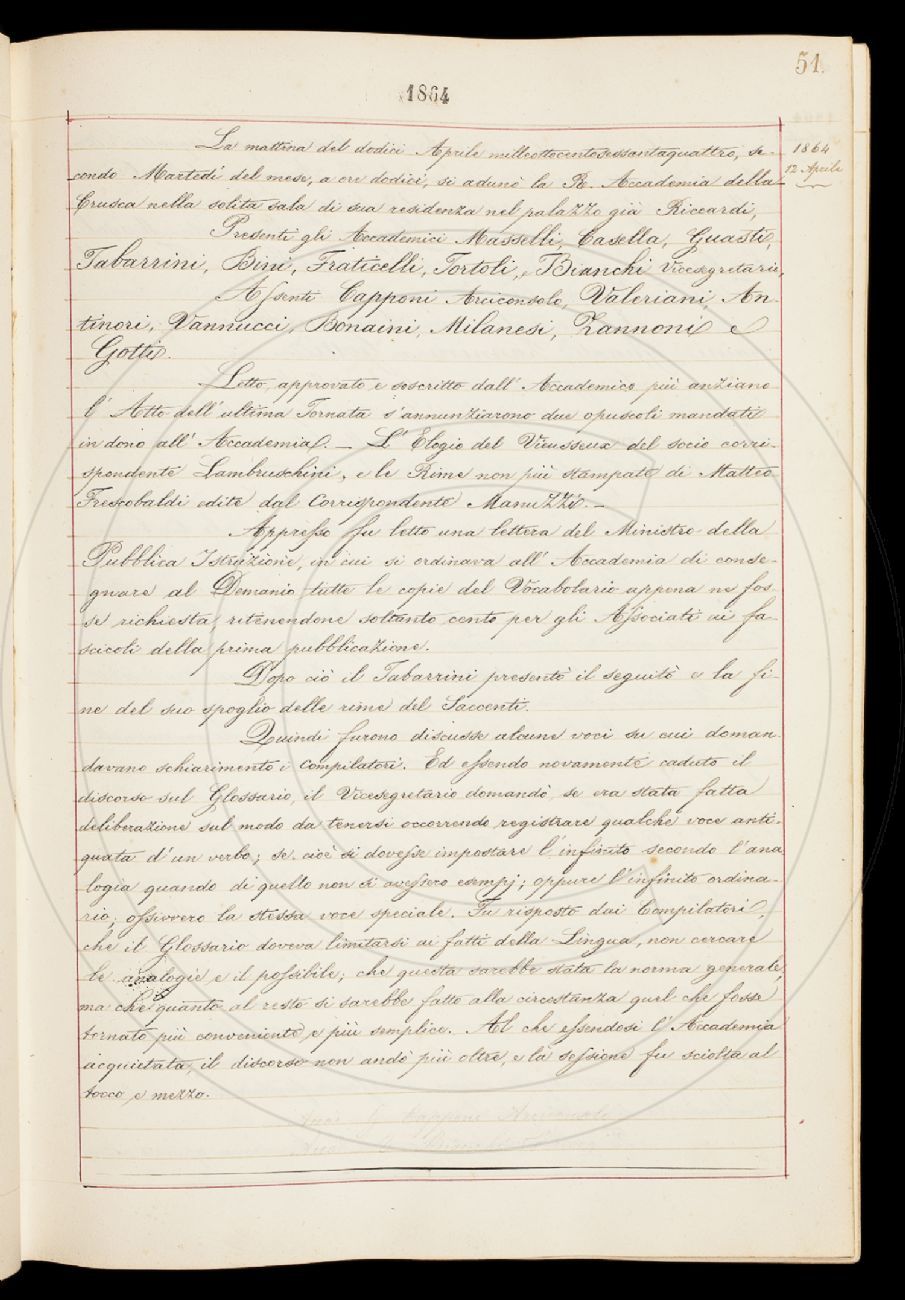 51.
1864
1864
12 Aprile
La mattina del dodici Aprile milleottocentosessantaquattro, se-
condo Martedì del mese, a ore dodici, si adunò la R. Accademia della
Crusca nella solita sala di sua residenza nel palazzo già Riccardi,
Presenti gli Accademici Masselli, Casella, Guasti,
Tabarrini, Bini, Fraticelli, Tortoli, e Bianchi Vicesegretario,
Assenti Capponi Arciconsolo, Valeriani, An-
tinori, Vannucci, Bonaini, Milanesi, Zannoni e
Gotti.
Letto, approvato e soscritto dall' Accademico più anziano
l' Atto dell' ultima Tornata s'annunziarono due opuscoli mandati
in dono all' Accademia. — L' Elogio del Vieusseux del socio corri-
spondente Lambruschini, e le Rime non più stampate di Matteo
Frescobaldi edite dal Corrispondente Manuzzi. —
Appresso fu letto una lettera del Ministro della
Pubblica Istruzione, in cui si ordinava all' Accademia di conse-
gnare al Demanio tutte le copie del Vocabolario appena ne fos-
se richiesta, ritenendone soltanto cento per gli Associati ai fa-
scicoli della prima pubblicazione.
Dopo ciò il Tabarrini presentò il seguito e la fi-
ne del suo spoglio delle rime del Saccenti.
Quindi furono discusse alcune voci su cui doman-
davano schiarimento i Compilatori. Ed essendo novamente caduto il
discorso sul Glossario, il Vicesegretario domandò, se era stata fatta
deliberazione sul modo da tenersi occorrendo registrare qualche voce anti-
quata d' un verbo; se cioè si dovesse impostare l' infinito secondo l' ana
logia quando di quello non si avessero esempj; oppure l' infinito ordina-
rio; ossivvero la stessa voce speciale. Fu risposto dai Compilatori,
che il Glossario doveva limitarsi ai fatti della Lingua, non cercare
le analogie e il possibile; che questa sarebbe stata la norma generale,
ma che quanto al resto si sarebbe fatto alla circostanza quel che fosse
tornato più conveniente e più semplice. Al che essendosi l' Accademia
acquietata, il discorso non andò più oltre, e la sessione fu sciolta al
tocco e mezzo.